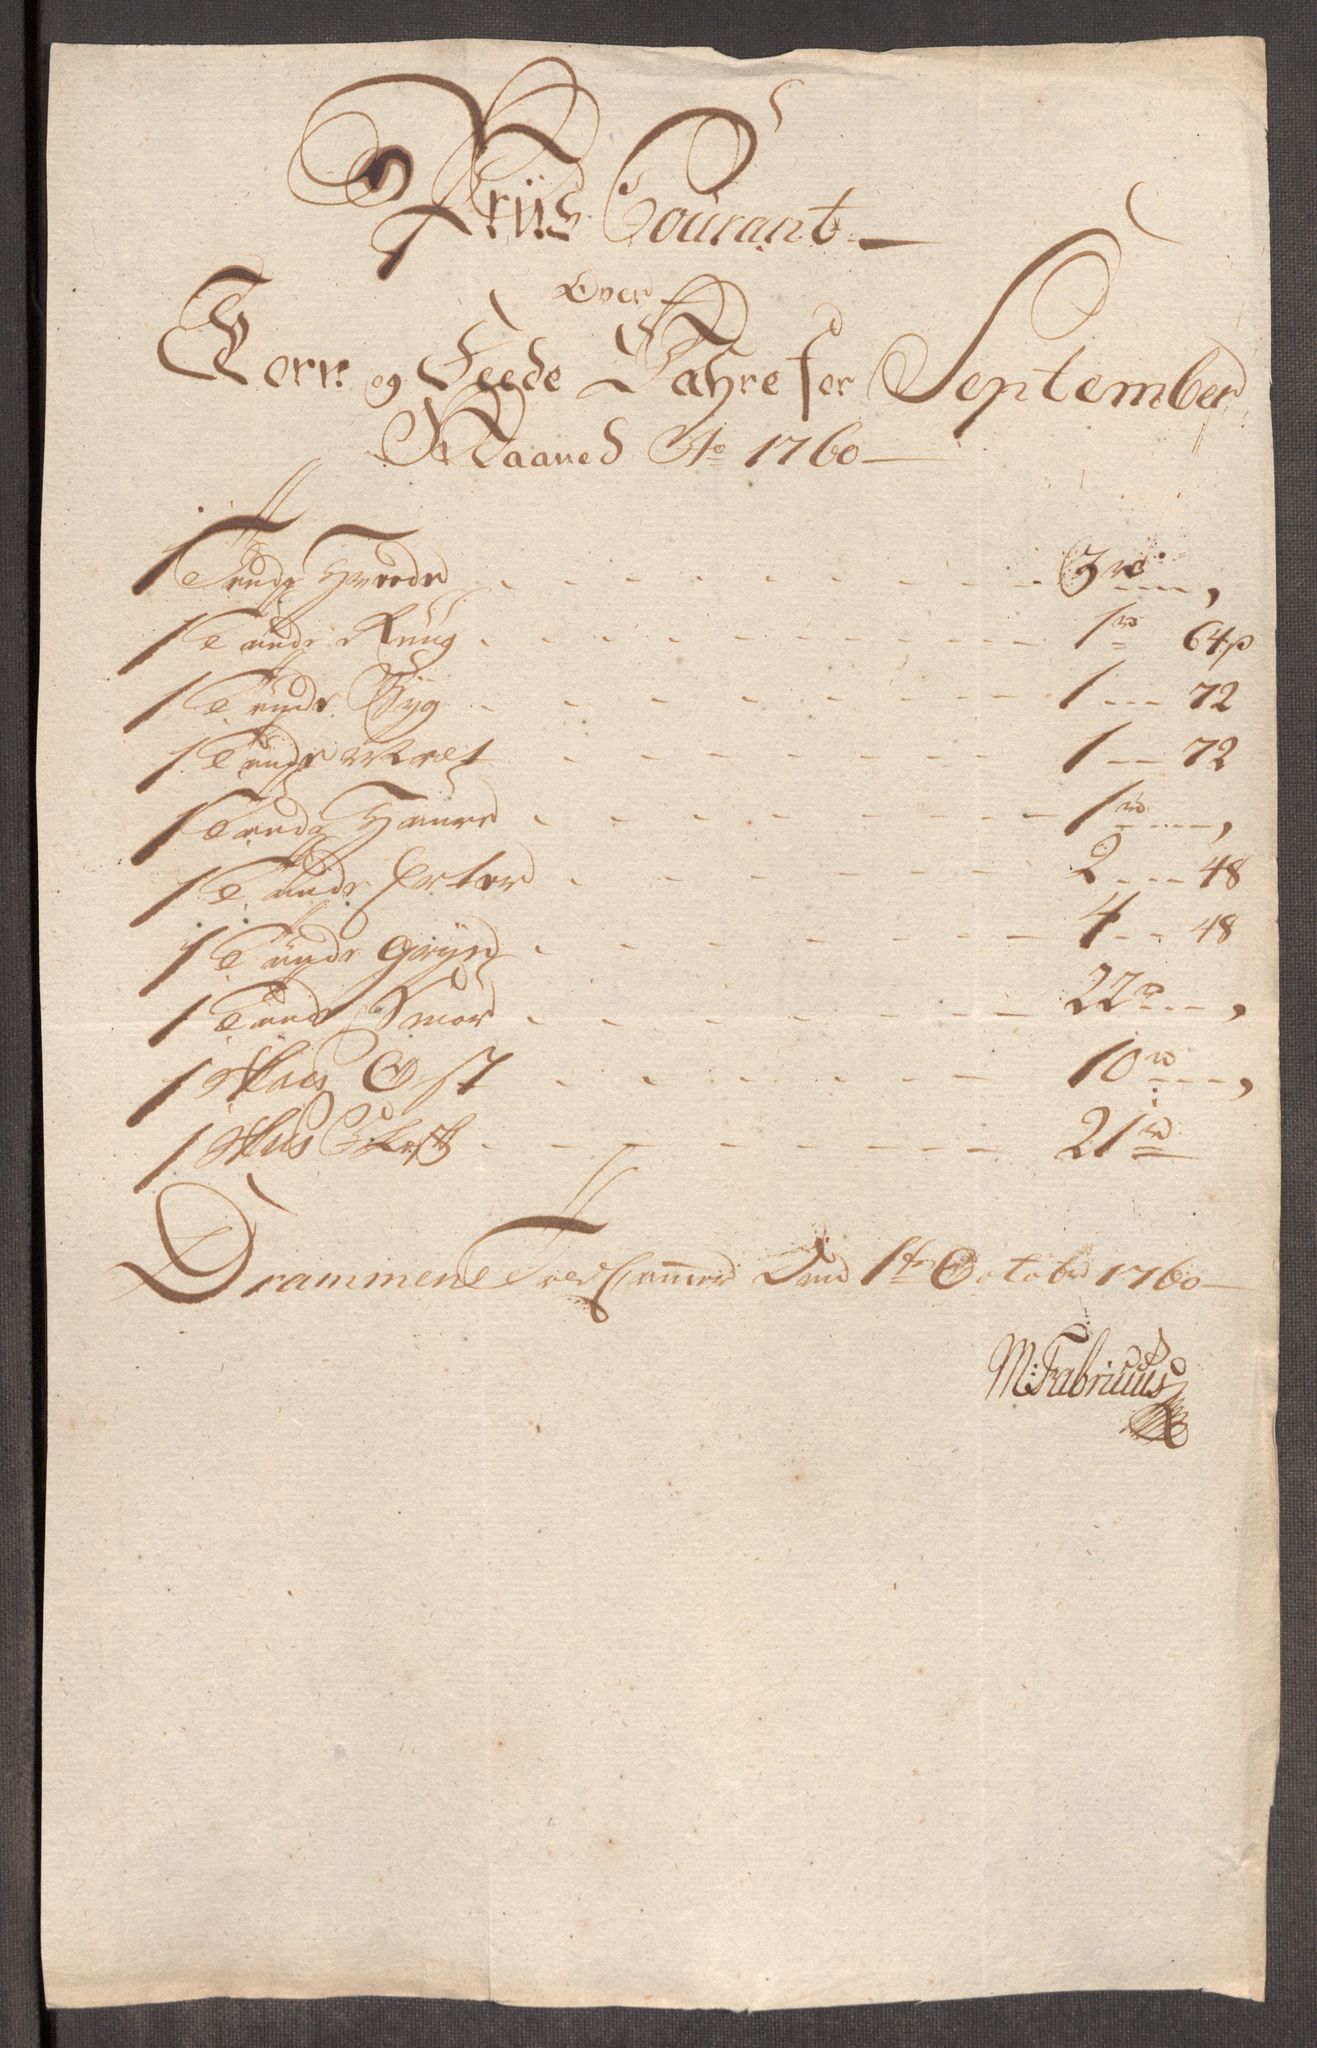 Priis Courant
Over
Korn og Feede Vahre for September
Maaned Ao 1760
1 Tønde Hvede 3 rd
1 Tønde Rüug 1 rd 64 s
1 Tønde Byg 1 72
1 Tønde Malt 1 72
1 Tønde Haure 1 rd
1 Tønde Erter 2 48
1 Tønde Gryn 4 48
1 Tønde Smør 22 rd
1 Skpd Ost 10 rd
1 Skpd 21 rd
Drammens Toldkammer Den 1ste Octobr 1760
M: Fabricius